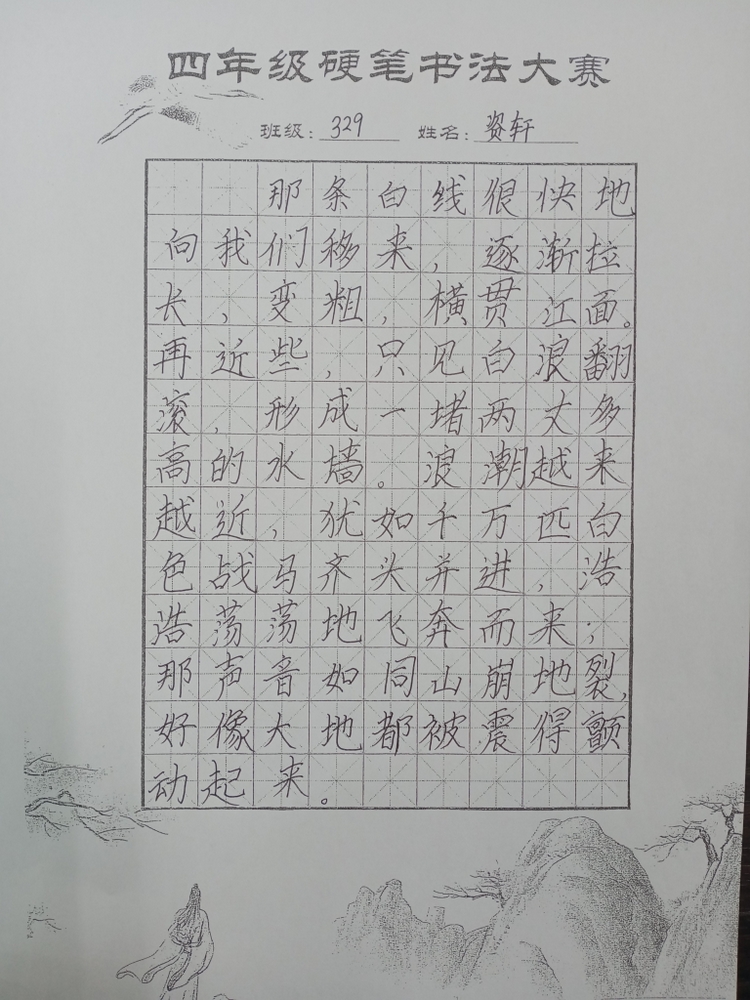 四年级硬笔书法大赛
班级：329 姓名：资轩
那条白线很快地
向我们移来，逐渐拉
长，变粗，横贯江面。
再近些，只见白浪翻
滚，形成一堵两丈多
高的水墙。浪潮越来
越近，犹如千万匹白
色战马齐头并进，浩
浩荡荡地飞奔而来；
那声音如同山崩地裂，
好像大地都被震得颤
动起来。